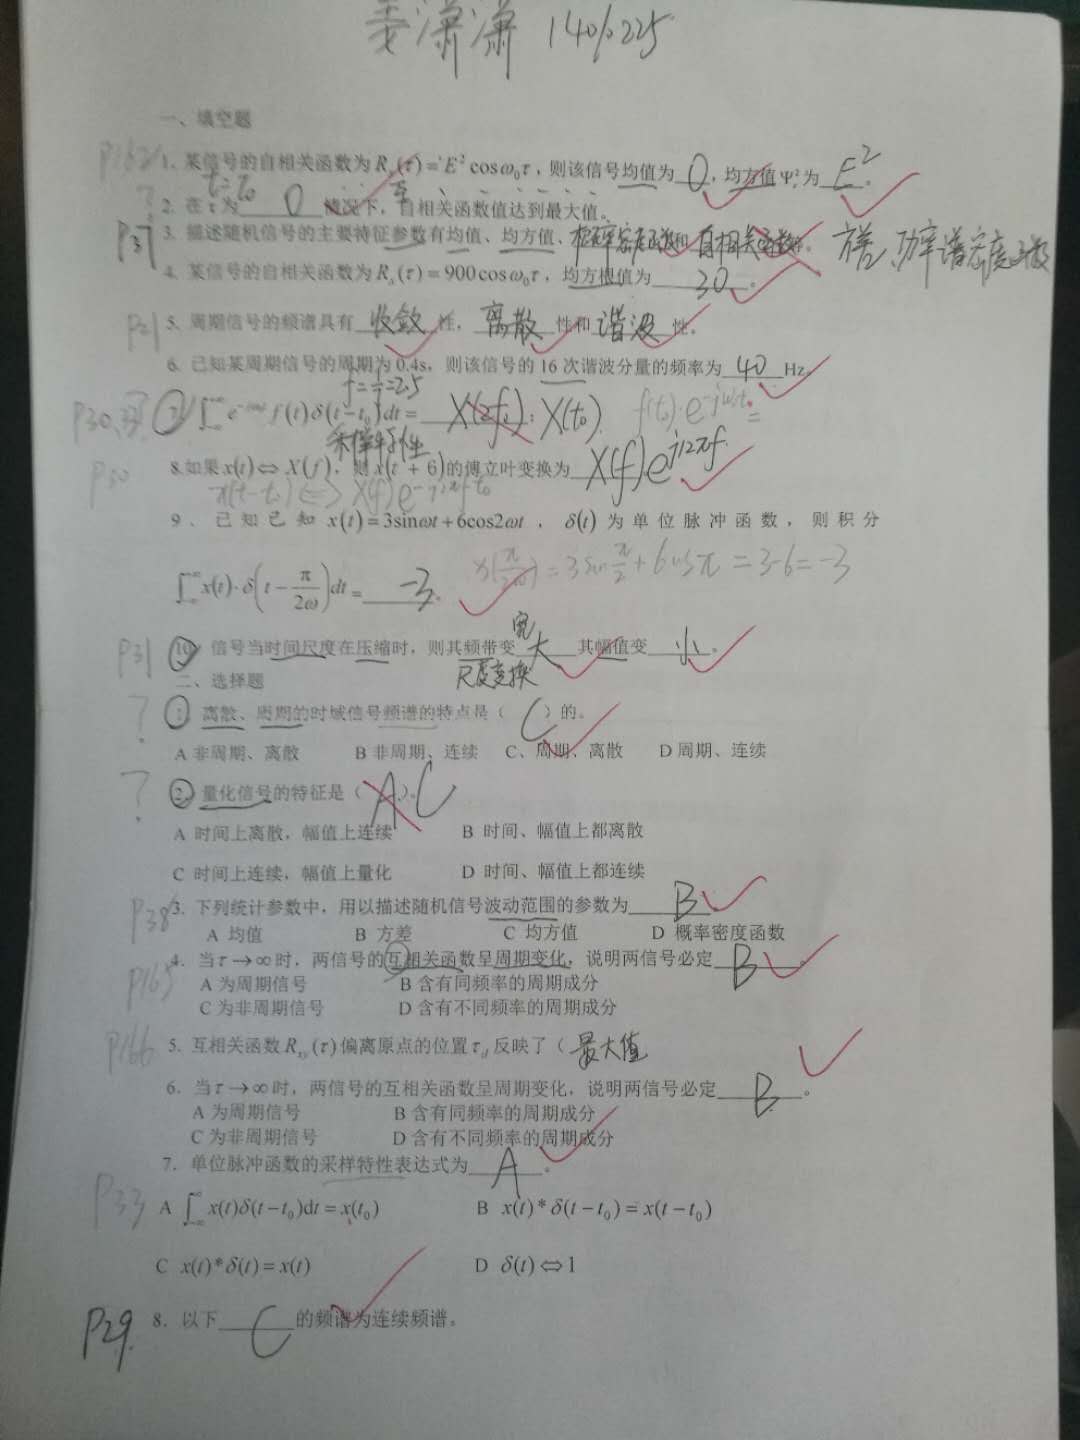 姜潇潇 140%225
一、填空题
P162 1. 某信号的自相关函数为 Rx(τ)=E²cosω₀τ，则该信号均值为 0，均方值ψx²为 E²。
? t=t₀ 至
2. 在τ为 0 情况下，自相关函数值达到最大值。
P37 3. 描述随机信号的主要特征参数有均值、均方值、概率密度函数和自相关函数等。 方差、功率谱密度函数
4. 某信号的自相关函数为 Rx(τ)=900cosω₀τ，均方根值为 30。
P21 5. 周期信号的频谱具有 收敛 性，离散 性和 谐波 性。
6. 已知某周期信号的周期为0.4s，则该信号的16次谐波分量的频率为 40 Hz。
f=1/T=2.5
P30、33? 7. ∫ f(t)δ(t−t₀)dt= X(2f₀); X(t₀). f(t₀)·e^(-jω₀t₀)=
采样特性
P30 8.如果x(t)⇔X(f)，则x(t+6)的傅立叶变换为 X(f)e^(j12πf)
x(t-t₀)⇔X(f)e^(-j2πft₀)
9、已知已知 x(t)=3sinωt+6cos2ωt，δ(t) 为单位脉冲函数，则积分
∫x(t)·δ(t−π/2ω)dt= -3. x(π/2ω)=3sinπ/2+6cosπ=3-6=-3
宽
P31 10. 信号当时间尺度在压缩时，则其频带变 大 其幅值变 小。
尺度变换
二、选择题
? 1. 离散、周期的时域信号频谱的特点是（ C ）的。
A 非周期、离散 B 非周期、连续 C、周期、离散 D 周期、连续
? 2. 量化信号的特征是（ A ）。 C
A 时间上离散，幅值上连续 B 时间、幅值上都离散
C 时间上连续，幅值上量化 D 时间、幅值上都连续
P38 3. 下列统计参数中，用以描述随机信号波动范围的参数为 B
A 均值 B 方差 C 均方值 D 概率密度函数
4. 当τ→∞时，两信号的互相关函数呈周期变化，说明两信号必定 B。
P165 A 为周期信号 B 含有同频率的周期成分
C 为非周期信号 D 含有不同频率的周期成分
P166 5. 互相关函数Rxy(τ)偏离原点的位置τd反映了（ 最大值
6. 当τ→∞时，两信号的互相关函数呈周期变化，说明两信号必定 B。
A 为周期信号 B 含有同频率的周期成分
C 为非周期信号 D 含有不同频率的周期成分
7. 单位脉冲函数的采样特性表达式为 A。
P33 A ∫x(t)δ(t−t₀)dt=x(t₀) B x(t)*δ(t−t₀)=x(t−t₀)
C x(t)*δ(t)=x(t) D δ(t)⇔1
P29. 8. 以下 C 的频谱为连续频谱。